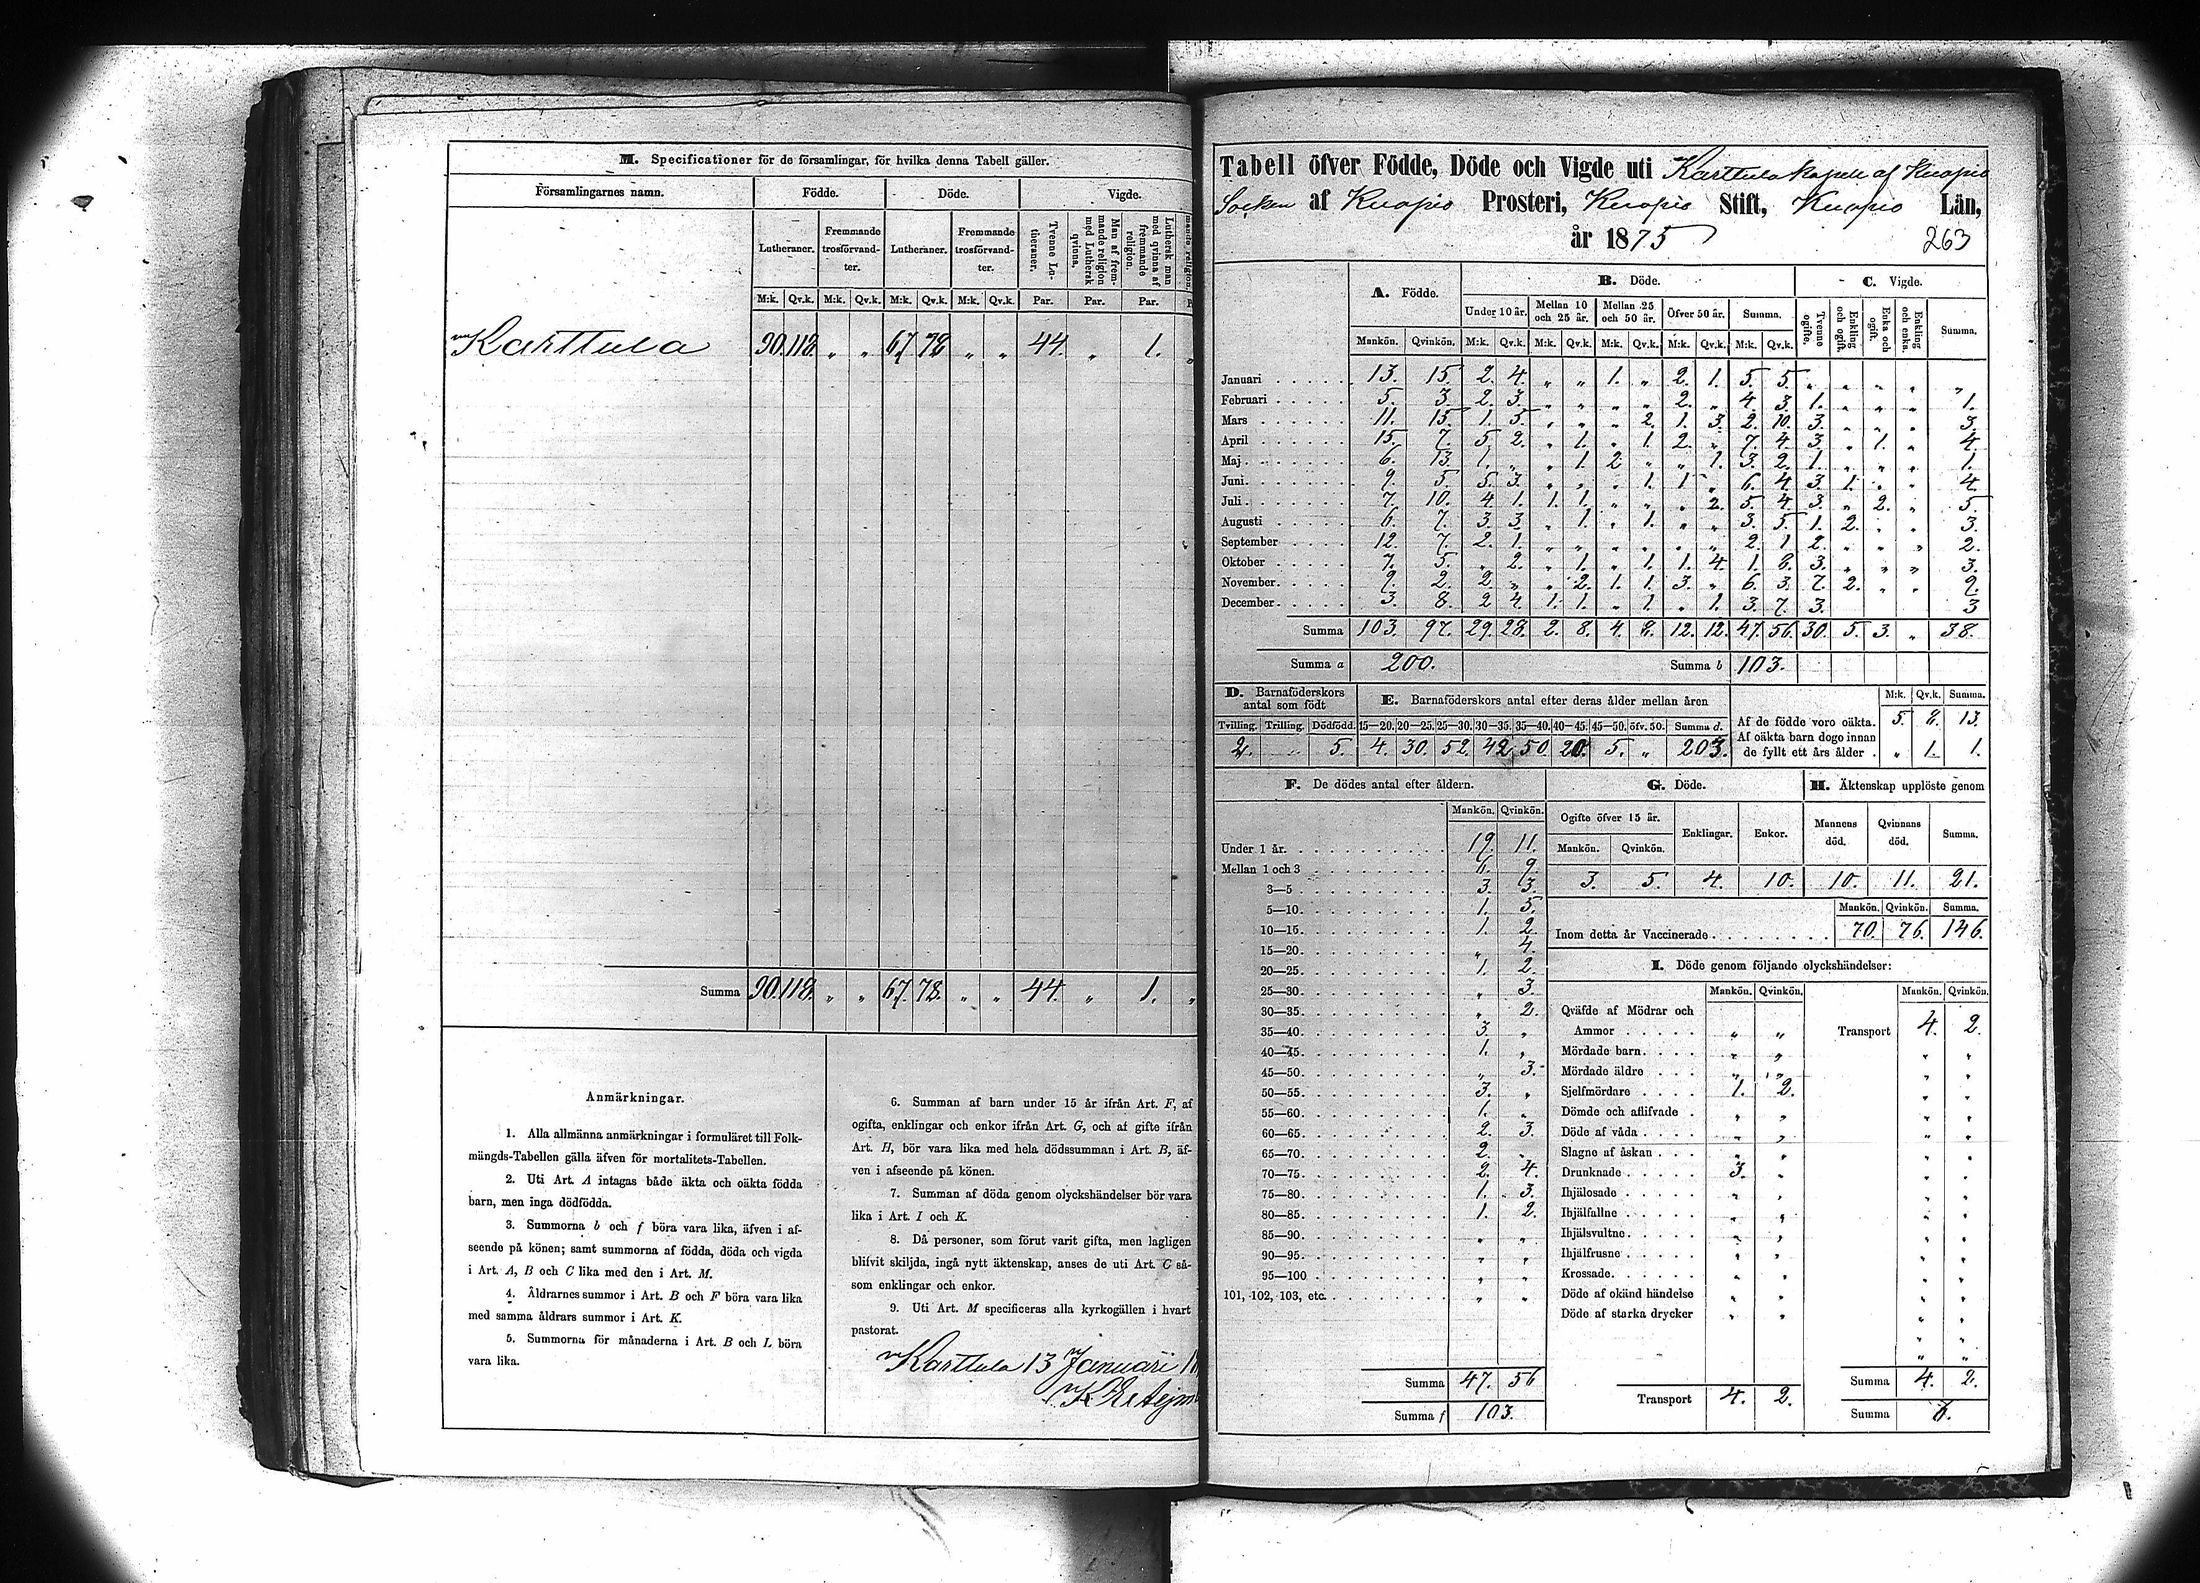 M. Specificationer för de församlingar, för hvilka denna Tabell gäller.
Församlingarnes namn. Födde. Döde. Vigde.
Lutheraner. Fremmande trosförvandter. Lutheraner. Fremmande trosförvandter. Tvenne Lutheraner. Man af fremmande religion med Luthersk qvinna. Luthersk man med qvinna af fremmande religion.
M:k. Qv.k. M:k. Qv.k. M:k. Qv.k. M:k. Qv.k. Par. Par. Par.
Karttula 90. 118. „ „ 67. 78 „ „ 44. „ 1. „
Summa 90. 118. „ „ 67. 78. „ „ 44. „ 1. „
Anmärkningar.
1. Alla allmänna anmärkningar i formuläret till Folk-
mängds-Tabellen gälla äfven för mortalitets-Tabellen.
2. Uti Art. A intagas både äkta och oäkta födda
barn, men inga dödfödda.
3. Summorna b och f böra vara lika, äfven i af-
seende på könen; samt summorna af födda, döda och vigda
i Art. A, B och C lika med den i Art. M.
4. Åldrarnes summor i Art. B och F böra vara lika
med samma åldrars summor i Art. K.
5. Summorna för månaderna i Art. B och L böra
vara lika.
6. Summan af barn under 15 år ifrån Art. F, af
ogifta, enklingar och enkor ifrån Art. G, och af gifte ifrån
Art. H, bör vara lika med hela dödssumman i Art. B, äf-
ven i afseende på könen.
7. Summan af döda genom olyckshändelser bör vara
lika i Art. I och K.
8. Då personer, som förut varit gifta, men lagligen
blifvit skiljda, ingå nytt äktenskap, anses de uti Art. C så-
som enklingar och enkor.
9. Uti Art. M specificeras alla kyrkogällen i hvart
pastorat.
Karttula 13 Januari
Tabell öfver Födde, Döde och Vigde uti Karttula kapell af Kuopio
Socken af Kuopio Prosteri, Kuopio Stift, Kuopio Län,
år 1875 263
A. Födde. B. Döde. C. Vigde.
Under 10 år. Mellan 10 och 25 år. Mellan 25 och 50 år. Öfver 50 år. Summa. Tvenne ogifte. Enkling och ogift. Enka och ogift. Enkling och enka. Summa.
Mankön. Qvinkön. M:k. Qv.k. M:k. Qv.k. M:k. Qv.k. M:k. Qv.k. M:k. Qv.k.
Januari 13. 15. 2. 4. „ „ 1. „ 2. 1. 5. 5. „ „ „ „ „
Februari 5. 3. 2. 3. „ „ „ „ 2. „ 4. 3. 1. „ „ „ 1.
Mars 11. 15. 1. 5. „ „ „ 2. 1. 3. 2. 10. 3. „ „ „ 3.
April 15. 7. 5. 2. „ 1. „ 1. 2. „ 7. 4. 3. „ 1. „ 4.
Maj 6. 13. 1. „ „ 1. 2. „ „ 1. 3. 2. 1. „ „ „ 1.
Juni 9. 5. 5. 3. „ „ „ 1. 1. „ 6. 4. 3. 1. „ „ 4.
Juli 7. 10. 4. 1. 1. 1. „ „ „ 2. 5. 4. 3. „ 2. „ 5.
Augusti 6. 7. 3. 3. „ 1. „ 1. „ „ 3. 5. 1. 2. „ „ 3.
September 12. 7. 2. 1. „ „ „ „ „ „ 2. 1. 2. „ „ „ 2.
Oktober 7. 5. „ 2. „ 1. „ 1. 1. 4. 1. 8. 3. „ „ „ 3.
November 9. 2. 2. „ „ 2. 1. 1. 3. „ 6. 3. 7. 2. „ „ 9.
December 3. 8. 2. 4. 1. 1. „ 1. „ 1. 3. 7. 3. 3
Summa 103. 97. 29. 28. 2. 8. 4. 8. 12. 12. 47. 56. 30. 5. 3. „ 38.
Summa a 200. Summa b 103.
D. Barnaföderskors antal som födt
Tvilling. Trilling. Dödfödd.
2. „ 5.
E. Barnaföderskors antal efter deras ålder mellan åren
15—20. 20—25. 25—30. 30—35. 35—40. 40—45. 45—50. öfv. 50. Summa d.
4. 30. 52. 42. 50. 20. 5. „ 203.
M:k. Qv.k. Summa.
Af de födde voro oäkta. 5. 8. 13.
Af oäkta barn dogo innan
de fyllt ett års ålder . „ 1. 1.
F. De dödes antal efter åldern.
Mankön. Qvinkön.
Under 1 år. 19. 11.
Mellan 1 och 3 6. 9.
3—5 3. 3.
5—10. 1. 5.
10—15. 1. 2.
15—20. „ 4.
20—25. 1. 2.
25—30. „ 3.
30—35. „ 2.
35—40. 3. „
40—45. 1. „
45—50. „ 3.
50—55. 3. „
55—60. 1. „
60—65. 2. 3.
65—70. 2. „
70—75. 2. 4.
75—80. 1. 3.
80—85. 1. 2.
85—90. „ „
90—95. „ „
95—100 „ „
101, 102, 103, etc. „ „
Summa 47. 56
Summa f 103.
G. Döde.
Ogifte öfver 15 år. Enklingar. Enkor.
Mankön. Qvinkön.
3. 5. 4. 10.
H. Äktenskap upplöste genom
Mannens död. Qvinnans död. Summa.
10. 11. 21.
Mankön. Qvinkön. Summa.
Inom detta år Vaccinerade 70. 76. 146.
I. Döde genom följande olyckshändelser:
Mankön. Qvinkön. Mankön. Qvinkön.
Qväfde af Mödrar och
Ammor „ „
Mördade barn. „ „
Mördade äldre „ „
Sjelfmördare 1. 2.
Dömde och aflifvade „ „
Döde af våda „ „
Slagne af åskan „ „
Drunknade 3. „
Ihjälosade „ „
Ihjälfallne „ „
Ihjälsvultne. „ „
Ihjälfrusne „ „
Krossade. „ „
Döde af okänd händelse „ „
Döde af starka drycker „ „
Transport 4. 2.
Transport 4. 2.
Summa 4. 2.
Summa 6.